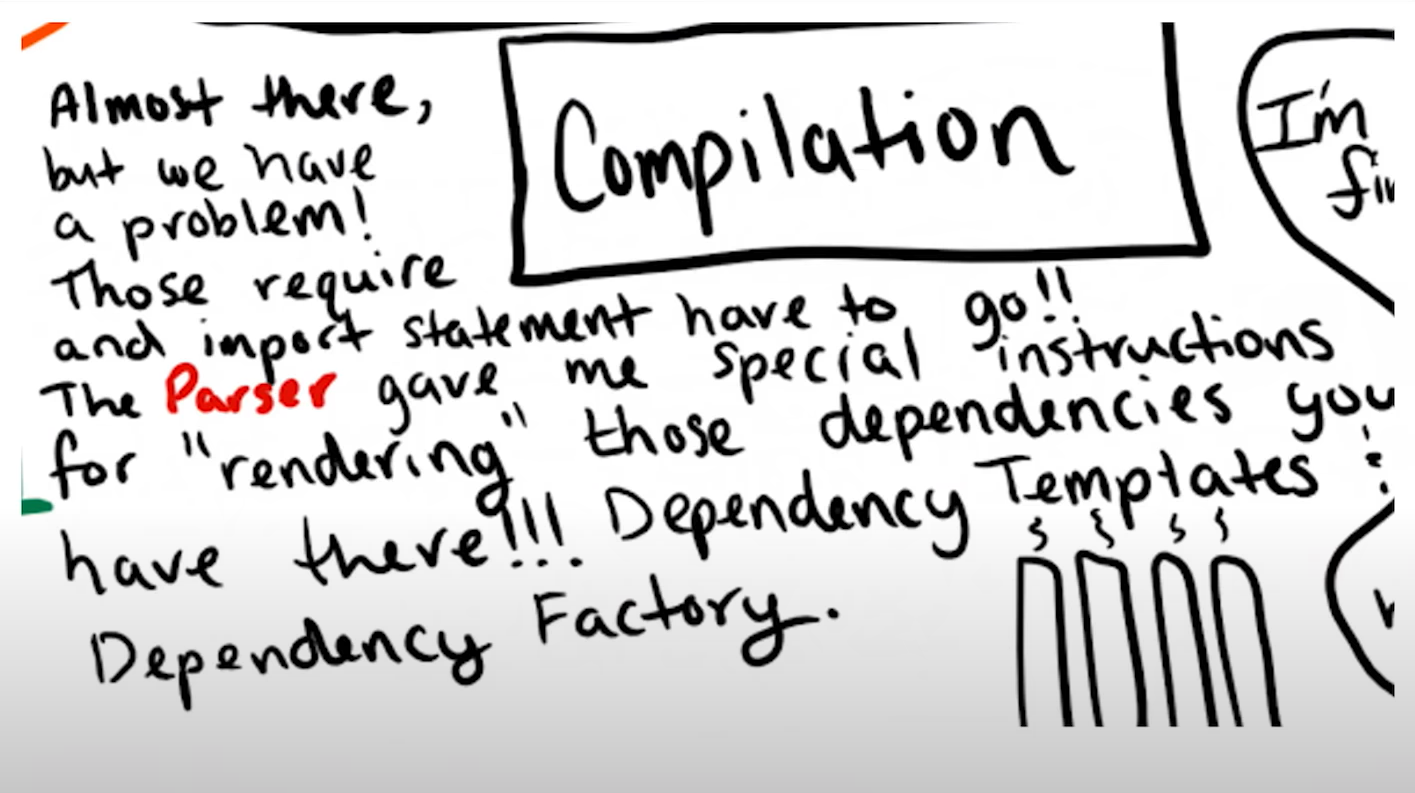 Compilation
Almost there,
but we have
a problem!
Those require
and import statement have to go!!
The Parser gave me special instructions
for "rendering" those dependencies you
have there!!! Dependency Templates :
Dependency Factory.
I'm